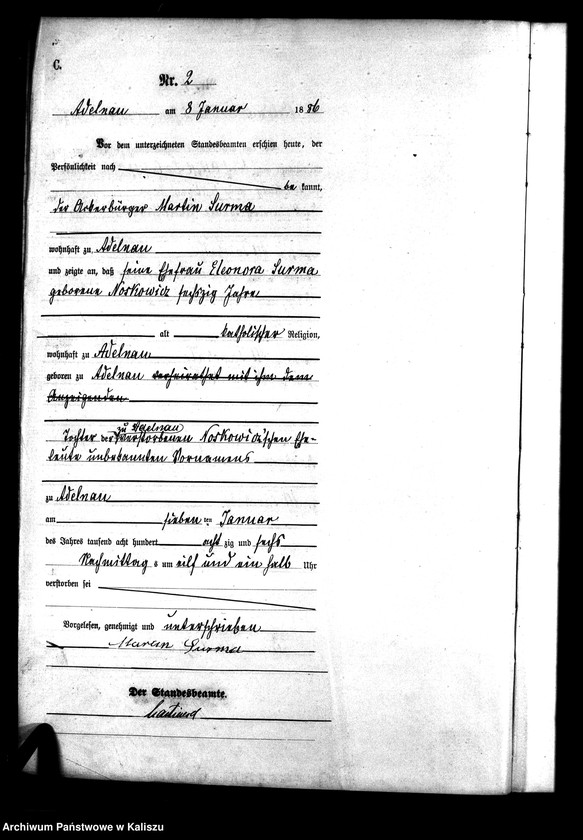 C.
Nr. 2
Adelnau am 8 Januar 1886
Vor dem unterzeichneten Standesbeamten erschien heute, der
Persönlichkeit nach
be kannt,
der Ackerbürger Martin Surma
wohnhaft zu Adelnau
und zeigte an, daß seine Ehefrau Eleonora Surma
geborene Noskowicz sechszig Jahre
alt katholischer Religion,
wohnhaft zu Adelnau
geboren zu Adelnau verheirathet mit ihm dem
Anzeigenden
zu Adelnau
Tochter der verstorbenen Noskowicz'schen Ehe-
leute unbekannten Vornamens
zu Adelnau
am sieben ten Januar
des Jahres tausend acht hundert acht zig und sechs
Nachmittag s um eilf und ein halb Uhr
verstorben sei
Vorgelesen, genehmigt und unterschrieben
Marcin Surma
Der Standesbeamte.
Archiwum Państwowe w Kaliszu